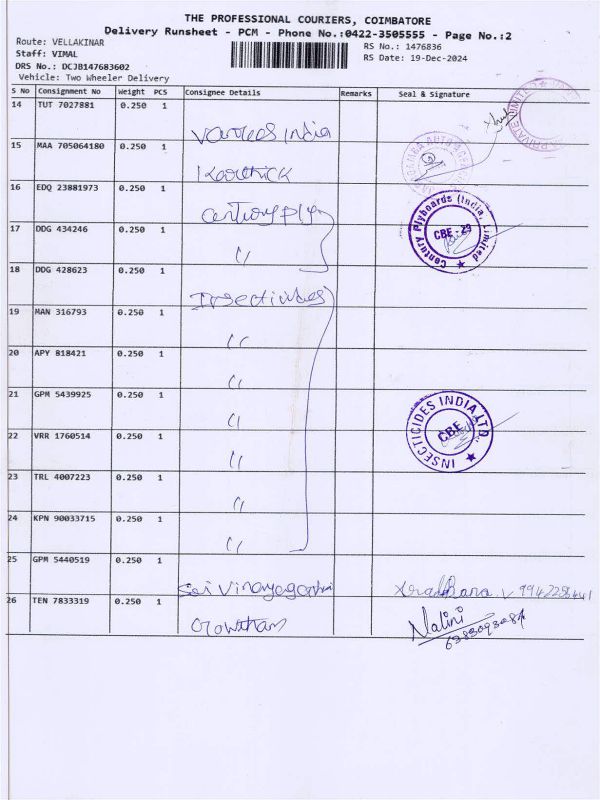 THE PROFESSIONAL COURIERS, COIMBATORE
Delivery Runsheet - PCM - Phone No.:0422-3505555 - Page No.:2
Route: VELLAKINAR
Staff: VIMAL
DRS No.: DCJB147683602
Vehicle: Two Wheeler Delivery
RS No.: 1476836
RS Date: 19-Dec-2024
S No Consignment No Weight PCS Consignee Details Remarks Seal & Signature
14 TUT 7027881 0.250 1 India
15 MAA 705064180 0.250 1 Karthick
16 EDQ 23881973 0.250 1 Century ply
17 DDG 434246 0.250 1 〃
Century Plyboards (India) Limited
CBE - 29
18 DDG 428623 0.250 1 Insecticides
19 MAN 316793 0.250 1 〃
20 APY 818421 0.250 1 〃
21 GPM 5439925 0.250 1 〃
INSECTICIDES INDIA LTD.
CBE
22 VRR 1760514 0.250 1 〃
23 TRL 4007223 0.250 1 〃
24 KPN 90033715 0.250 1 〃
25 GPM 5440519 0.250 1 Sai
26 TEN 7833319 0.250 1 Gowtham Nalini